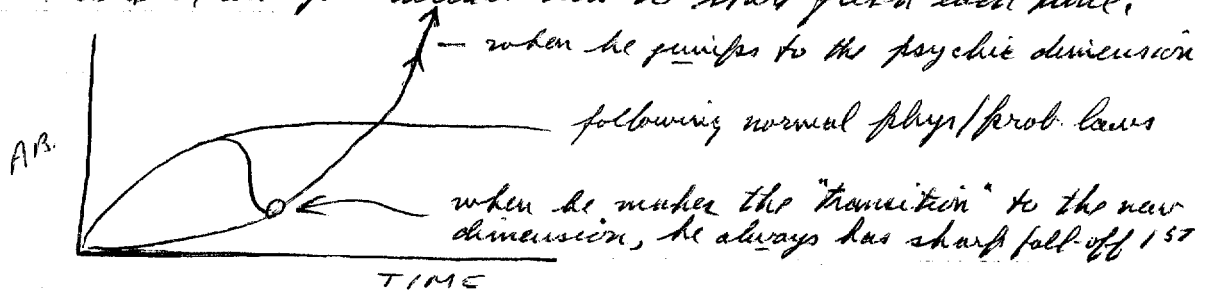 start fresh each time.
— when he jumps to the psychic dimension
following normal phys/prob laws
AB.
when he makes the "transition" to the new
dimension, he always has sharp fall-off 1ST
TIME